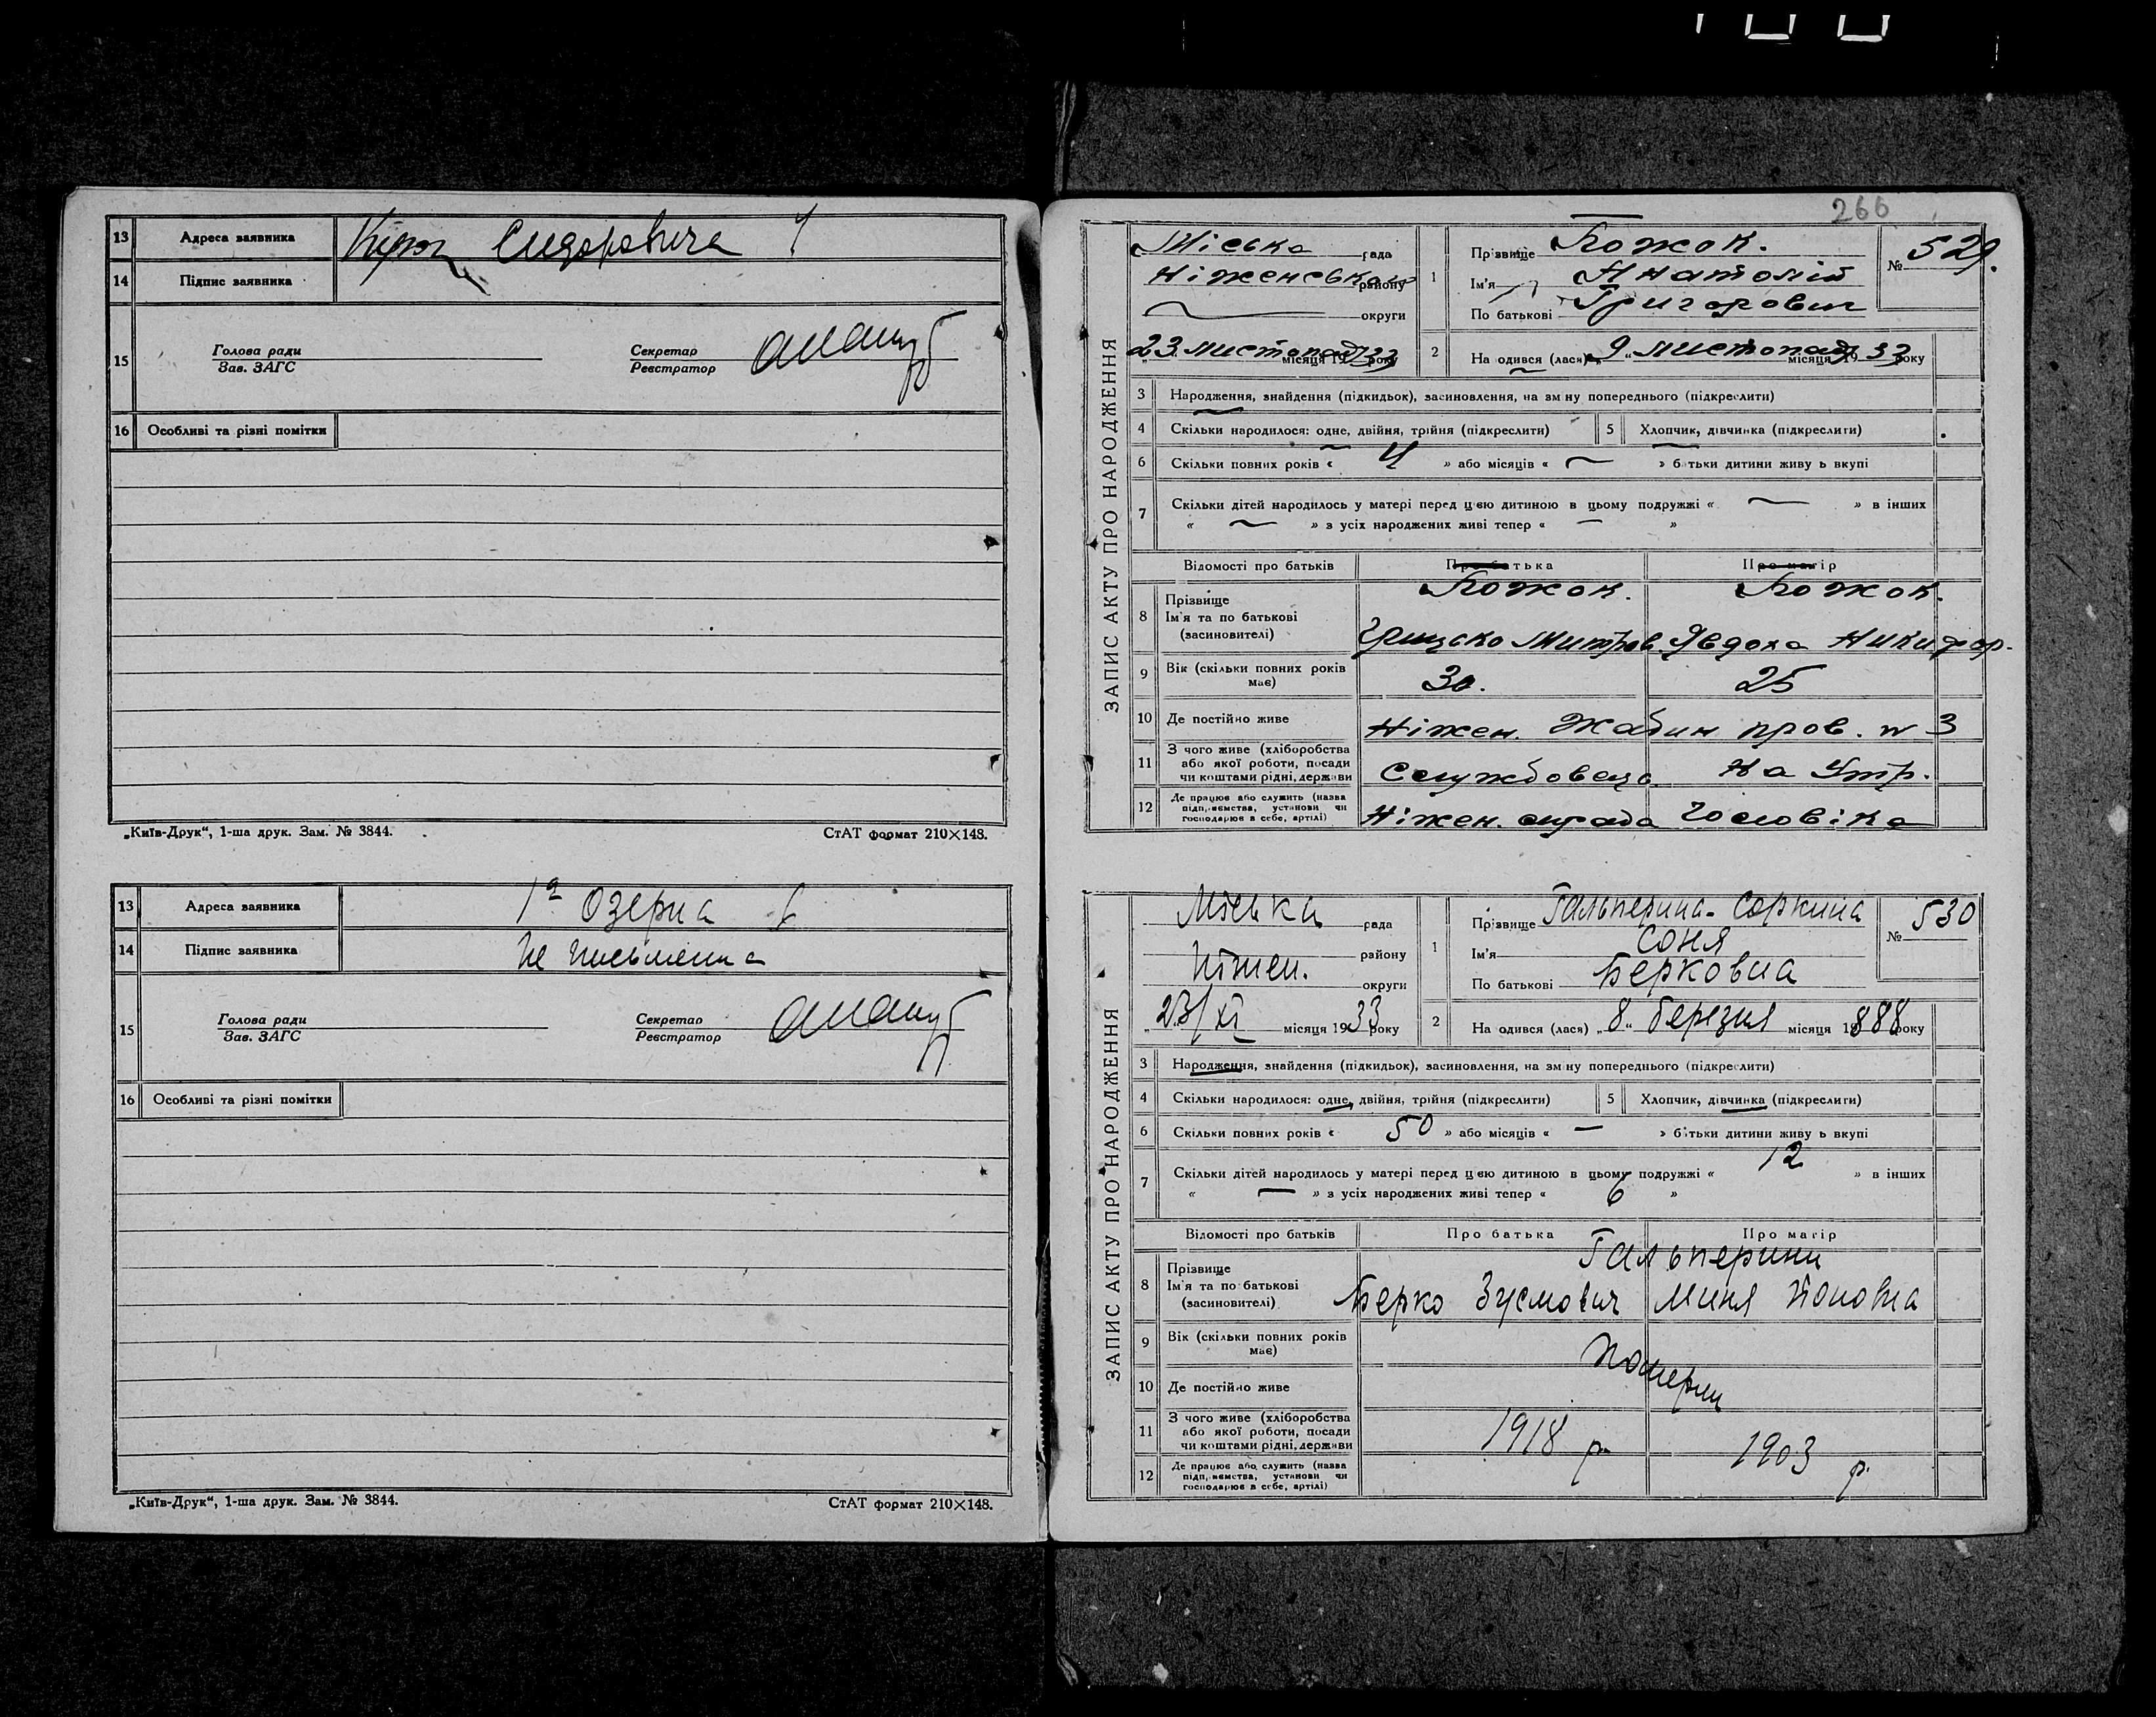 13 Адреса заявника Сидоровича 4
14 Підпис заявника
15 Голова ради
Зав. ЗАГС
Секретар
Реєстратор
16 Особливі та різні помітки
„Київ-Друк“, 1-ша друк. Зам. № 3844. СтАТ формат 210×148.
13 Адреса заявника 1а Озерна 6
14 Підпис заявника Не письменна
15 Голова ради
Зав. ЗАГС
Секретар
Реєстратор
16 Особливі та різні помітки
„Київ-Друк“, 1-ша друк. Зам. № 3844. СтАТ формат 210×148.
266
ЗАПИС АКТУ ПРО НАРОДЖЕННЯ
Міська рада
Ніженського району
округи
23 листопад місяця 1933 року
1 Прізвище Божок.
Ім'я Анатолій
По батькові Григорович
№ 529.
2 На одився (лася) „9“ листопад місяця 1933 року
3 Народження, знайдення (підкидьок), засиновлення, на зм ну попереднього (підкреслити)
4 Скільки народилося: одне, двійня, трійня (підкреслити) 5 Хлопчик, дівчинка (підкреслити)
6 Скільки повних років « 4 » або місяців « — » б тьки дитини живу ь вкупі
7 Скільки дітей народилось у матері перед ц єю дитиною в цьому подружжі « — » в інших
« — » з усіх народжених живі тепер « — »
Відомості про батьків Про батька Про матір
8 Прізвище
Ім'я та по батькові
(засиновителі)
Божок. Божок.
Грицько Митров. Явдоха Никифор.
9 Вік (скільки повних років має) 30. 25
10 Де постійно живе Ніжен. Жабин пров. № 3
11 З чого живе (хліборобства
або якої роботи, посади
чи коштами рідні, держави
Службовець На Утр.
12 Де працює або служить (назва
підп, иємства, установи чи
господарює в себе, артілі)
Ніжен. чоловіка
ЗАПИС АКТУ ПРО НАРОДЖЕННЯ
Міська рада
району
Ніжен. округи
„23/XI місяця 1933 року
1 Прізвище Гальперина-Соркина
Ім'я Соня
По батькові Берковна
№ 530
2 На одився (лася) „8“ березня місяця 1888 року
3 Народження, знайдення (підкидьок), засиновлення, на зм ну попереднього (підкреслити)
4 Скільки народилося: одне, двійня, трійня (підкреслити) 5 Хлопчик, дівчинка (підкреслити)
6 Скільки повних років « 50 » або місяців « — » б тьки дитини живу ь вкупі
7 Скільки дітей народилось у матері перед ц єю дитиною в цьому подружжі « 12 » в інших
« — » з усіх народжених живі тепер « 6 »
Відомості про батьків Про батька Про матір
8 Прізвище
Ім'я та по батькові
(засиновителі)
Гальперини
Берко Зусмович Миня Йоновна
9 Вік (скільки повних років має)
Померли
10 Де постійно живе
11 З чого живе (хліборобства
або якої роботи, посади
чи коштами рідні, держави
1918 р. 1903 р.
12 Де працює або служить (назва
підп, иємства, установи чи
господарює в себе, артілі)